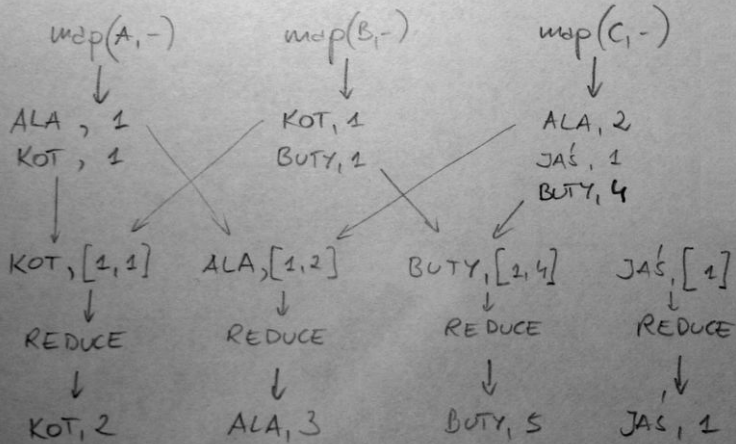 map(A,-) map(B,-) map(C,-)
ALA, 1 KOT, 1 ALA, 2
KOT, 1 BUTY, 1 JAŚ, 1
BUTY, 4
KOT, [1,1] ALA, [1,2] BUTY, [1,4] JAŚ, [1]
REDUCE REDUCE REDUCE REDUCE
KOT, 2 ALA, 3 BUTY, 5 JAŚ, 1